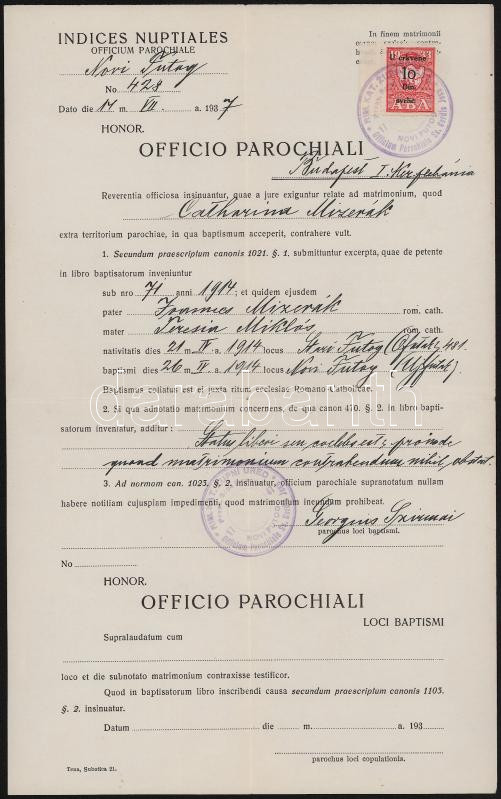 INDICES NUPTIALES
OFFICIUM PAROCHIALE
Novi Futog
No 428
Dato die 17 m. VII. a. 1937
HONOR.
In finem matrimonii
1933
U crkvene
10
Din.
svrhe
ABA
NOVI FUTOG
OFFICIO PAROCHIALI
Budapest I.
Reverentia officiosa insinuantur, quae a jure exiguntur relate ad matrimonium, quod
Catharina Mizerák
extra territorium parochiae, in qua baptismum acceperit, contrahere vult.
1. Secundum praescriptum canonis 1021. §. 1. submittuntur excerpta, quae de petente
in libro baptisatorum inveniuntur
sub nro 71 anni 1914; et quidem ejusdem
pater Joannes Mizerák rom. cath.
mater Teresia Miklós rom. cath.
nativitatis dies 21 m. IV a. 1914 locus Stari Futog (Ófutak) 481.
baptismi dies 26 m. IV a. 1914 locus Novi Futog (Ujfutak).
Baptismus collatus est ej juxta ritum ecclesiae Romano-Catholicae.
2. Si qua adnotatio matrimonium concernens, de qua canon 470. §. 2. in libro bapti-
satorum inveniatur, additur:
Status liberi seu coelebs est; proinde
quoad matrimonium contrahendum nihil obstat.
3. Ad normam can. 1023. §. 2. insinuatur, officium parochiale supranotatum nullam
habere notitiam cujuspiam impedimenti, quod matrimonium ineundum prohibeat.
NOVI FUTOG
Georgius Szirmai
parochus loci baptismi.
No
HONOR.
OFFICIO PAROCHIALI
LOCI BAPTISMI
Supralaudatum cum
loco et die subnotato matrimonium contraxisse testificor.
Quod in baptisatorum libro inscribendi causa secundum praescriptum canonis 1103.
§. 2. insinuatur.
Datum die m. a. 193
parochus loci copulationis.
Tena, Subotica 21.
darabanth